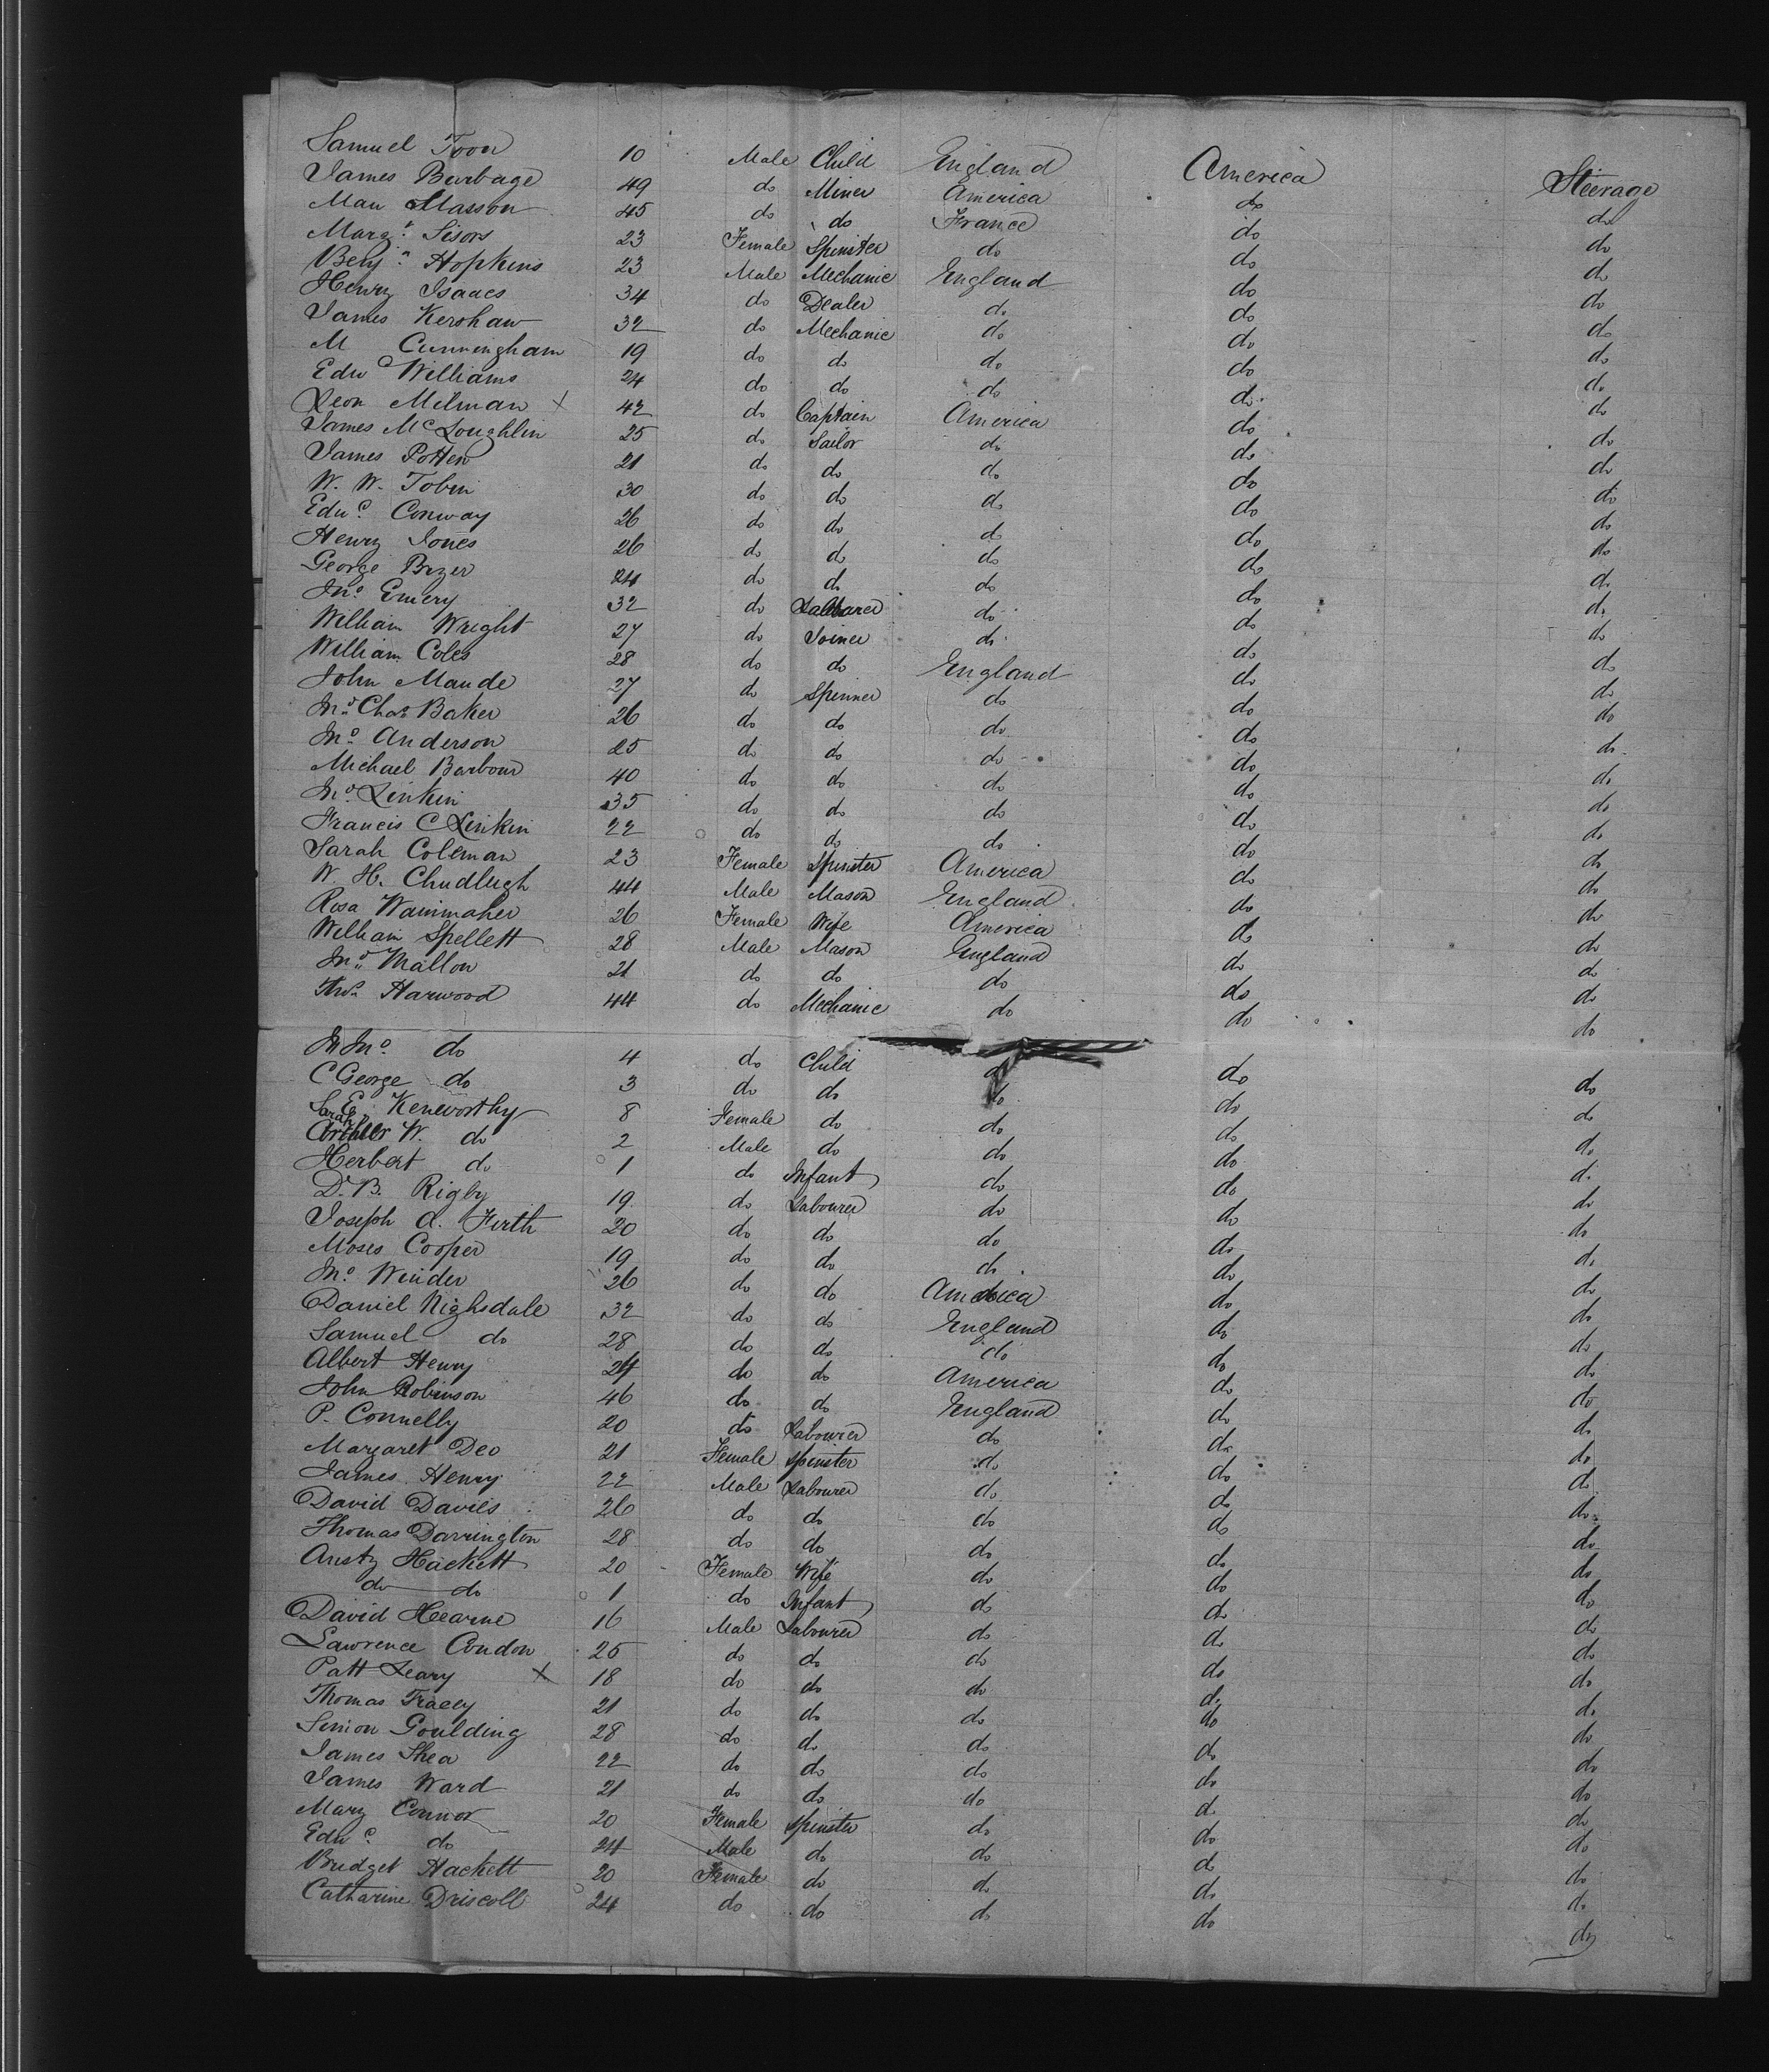 Samuel Toon 10 Male Child England America Steerage
James Burbage 49 do Miner America do do
Man Masson 45 do do France do do
Margt. Sisors 23 Female Spinster do do do
Benjn. Hopkins 23 Male Mechanic England do do
Henry Isaacs 34 do Dealer do do do
James Kershaw 32 do Mechanic do do do
M Cunningham 19 do do do do do
Edw Williams 24 do do do do do
Leon Milman X 42 do Captain America do do
James McLoughlin 25 do Sailor do do do
James Potten 21 do do do do do
W. W. Tobin 30 do do do do do
Edwd. Conway 26 do do do do do
Henry Jones 26 do do do do do
George 24 do do do do do
Jno. Emery 32 do Labourer do do do
William Wright 27 do Joiner do do do
William Coles 28 do do England do do
John Maude 27 do Spinner do do do
Jno. Chas Baker 26 do do do do do
Jno. Anderson 25 do do do do do
Michael Barbour 40 do do do do do
Jno. Linkin 35 do do do do do
Francis C Linkin 22 do do do do do
Sarah Coleman 23 Female Spinster America do do
W. H. Chudleigh 44 Male Mason England do do
Rosa Wainmaher 26 Female Wife America do do
William Spellett 28 Male Mason England do do
Jno. Mallow 21 do do do do do
Thos. Harwood 44 do Mechanic do do do
Jno. do 4 do Child do do do
C George do 3 do do do do do
S. E. Kenworthy 8 Female do do do do
Sarah
Arthur W. do 2 Male do do do do
Herbert do 1 do Infant do do do
D. B. Rigby 19 do Labourer do do do
Joseph A. Firth 20 do do do do do
Moses Cooper 19 do do do do do
Jno. Winder 26 do do America do do
Daniel Nighsdale 32 do do England do do
Samuel do 28 do do do do do
Albert Henry 24 do do America do do
John Robinson 46 do do England do do
P. Connelly 20 do Labourer do do do
Margaret Deo 21 Female Spinster do do do
James Henry 22 Male Labourer do do do
David Davies 26 do do do do do
Thomas Darrington 28 do do do do do
Austy Hackett 20 Female Wife do do do
do do 1 do Infant do do do
David Hearne 16 Male Labourer do do do
Lawrence Condon 25 do do do do do
Patt Leary X 18 do do do do do
Thomas Tracey 21 do do do do do
Simon Goulding 28 do do do do do
James Shea 22 do do do do do
James Ward 21 do do do do do
Mary Connor 20 Female Spinster do do do
Edwd. do 24 Male do do do do
Bridget Hackett 20 Female do do do do
Catharine Driscoll 24 do do do do do